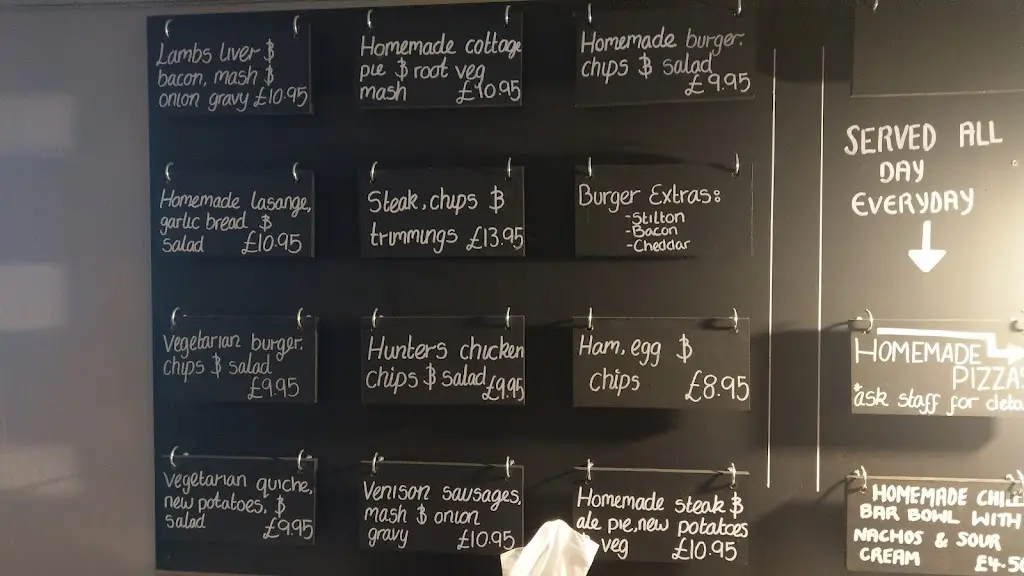 Lambs liver &
bacon, mash &
onion gravy £10.95
Homemade cottage
pie & root veg
mash £10.95
Homemade burger.
chips & salad
£9.95
Homemade lasange,
garlic bread &
salad £10.95
Steak, chips &
trimmings £13.95
Burger Extras:
-Stilton
-Bacon
-Cheddar
Vegetarian burger.
chips & salad
£9.95
Hunters chicken
chips & salad £9.95
Ham, egg &
chips £8.95
Vegetarian quiche,
new potatoes, &
salad £9.95
Venison sausages,
mash & onion
gravy £10.95
Homemade steak &
ale pie, new potatoes
veg £10.95
SERVED ALL
DAY
EVERYDAY
HOMEMADE
PIZZAS
*ask staff for deta
HOMEMADE CHILL
BAR BOWL WITH
NACHOS & SOUR
CREAM £4.50